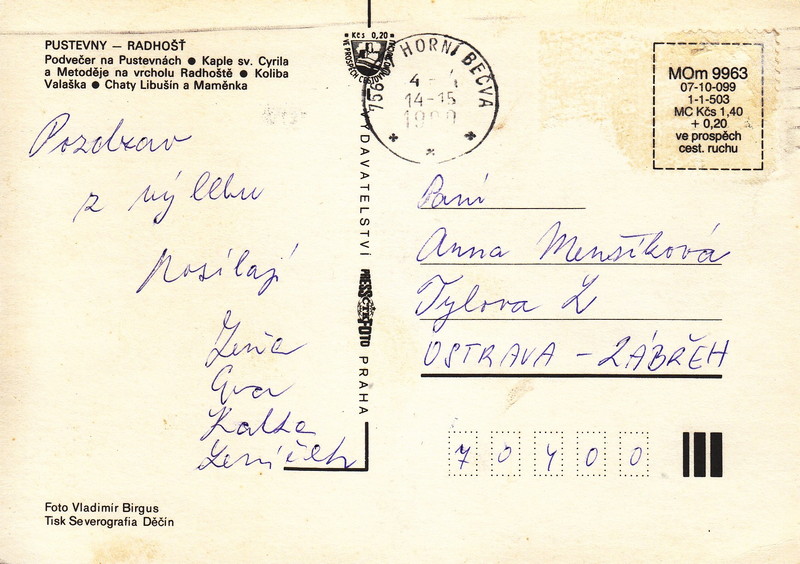 PUSTEVNY — RADHOŠŤ
Podvečer na Pustevnách ● Kaple sv. Cyrila
a Metoděje na vrcholu Radhoště ● Koliba
Valaška ● Chaty Libušín a Maměnka
Pozdrav
z výletu
posílají
Eva
Foto Vladimír Birgus
Tisk Severografia Děčín
Kčs 0,20
VYDAVATELSTVÍ PRESSFOTO PRAHA
HORNÍ BEČVA
14-15
MOm 9963
07-10-099
1-1-503
MC Kčs 1,40
+ 0,20
ve prospěch
cest. ruchu
Paní
Anna Menšíková
Tylova 2
OSTRAVA - ZÁBŘEH
7 0 4 0 0